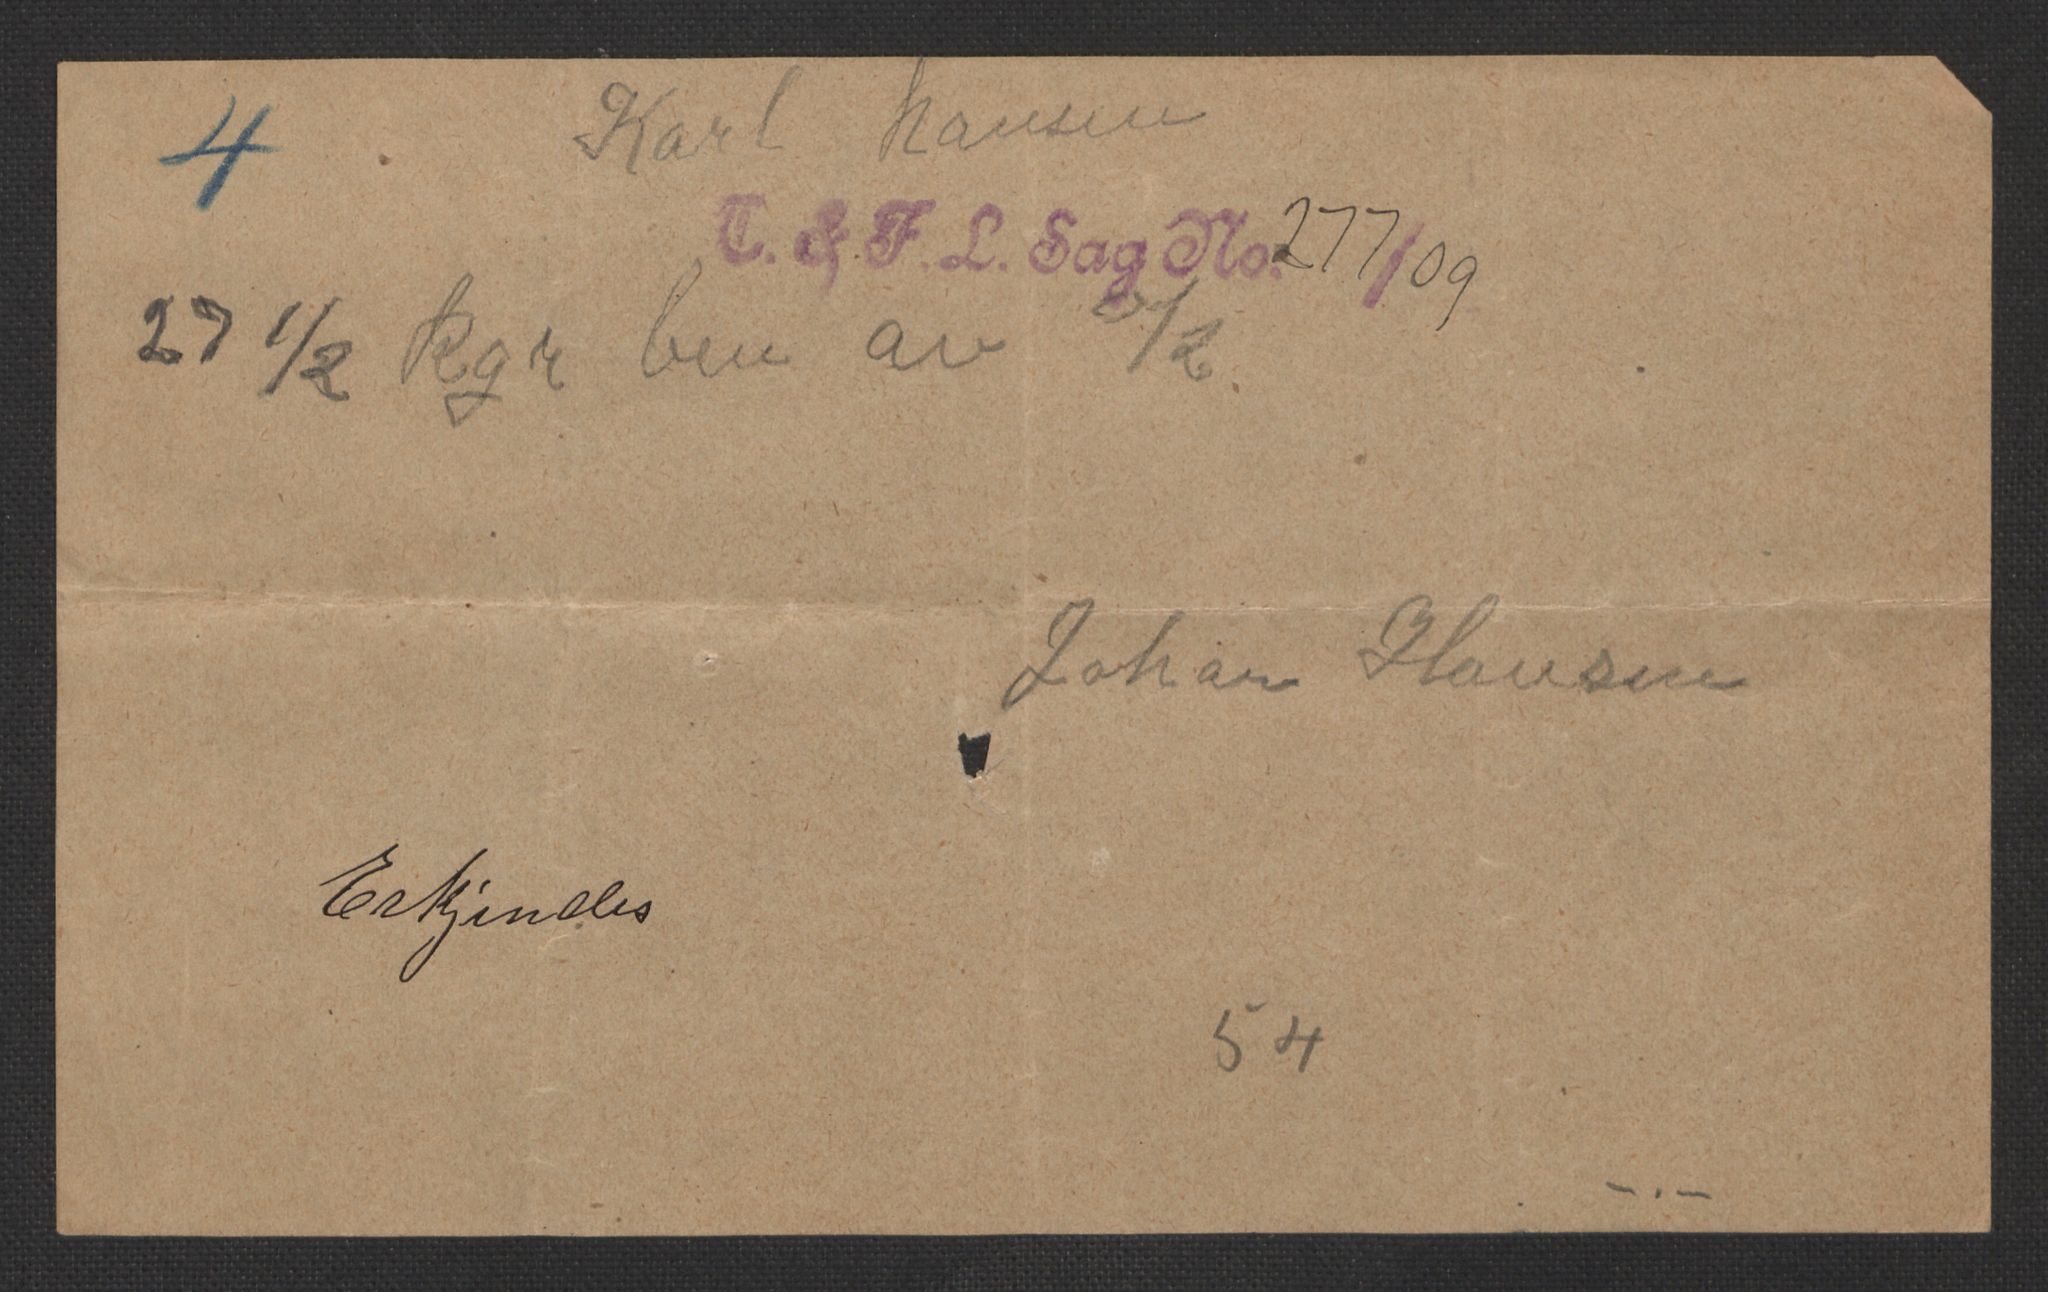 4
Karl hansen
T. & F. L. Sag No. 277/09
27 1/2 kgr ben av /2
Johan Hansen
Erkjendes
54
-.-